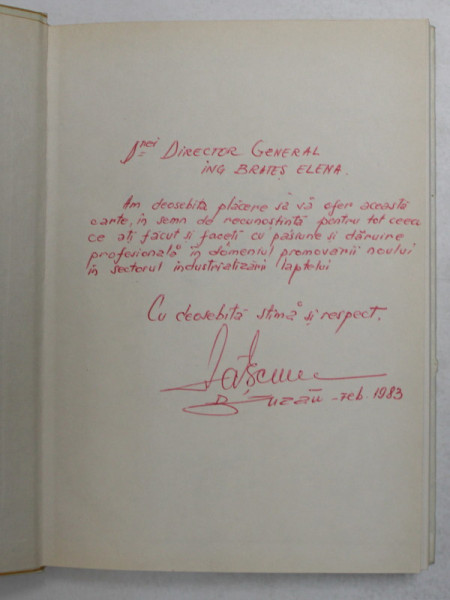 D-nei DIRECTOR GENERAL
ING BRATEȘ ELENA.
Am deosebita plăcere să vă ofer această
carte, în semn de recunoștință pentru tot ceea
ce ați făcut și faceți cu pasiune și dăruire
profesională în domeniul promovării noului
în sectorul industrializării laptelui
Cu deosebită stimă și respect.
Buzău - Feb. 1983